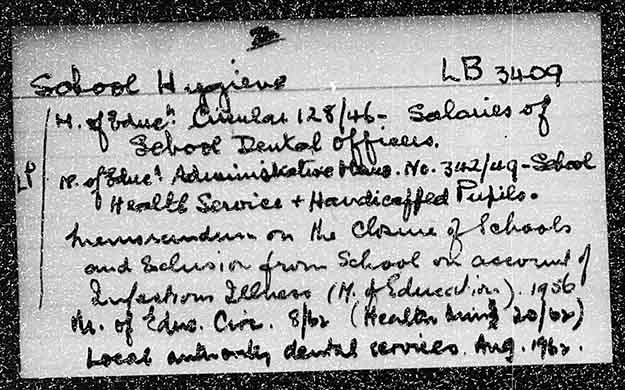 School Hygiene LB 3409
M. of Educn. Circular 128/46 - Salaries of
School Dental Officers.
LP M. of Educn. Administrative Memo. No. 342/49 - School
Health Service + Handicapped Pupils.
Memorandum on the Closure of Schools
and Exclusion from School on account of
Infectious Illness (M. of Education). 1956
M. of Educ. Circ. 8/62 (Health Min 20/62)
Local authority dental services. Aug. 1962.